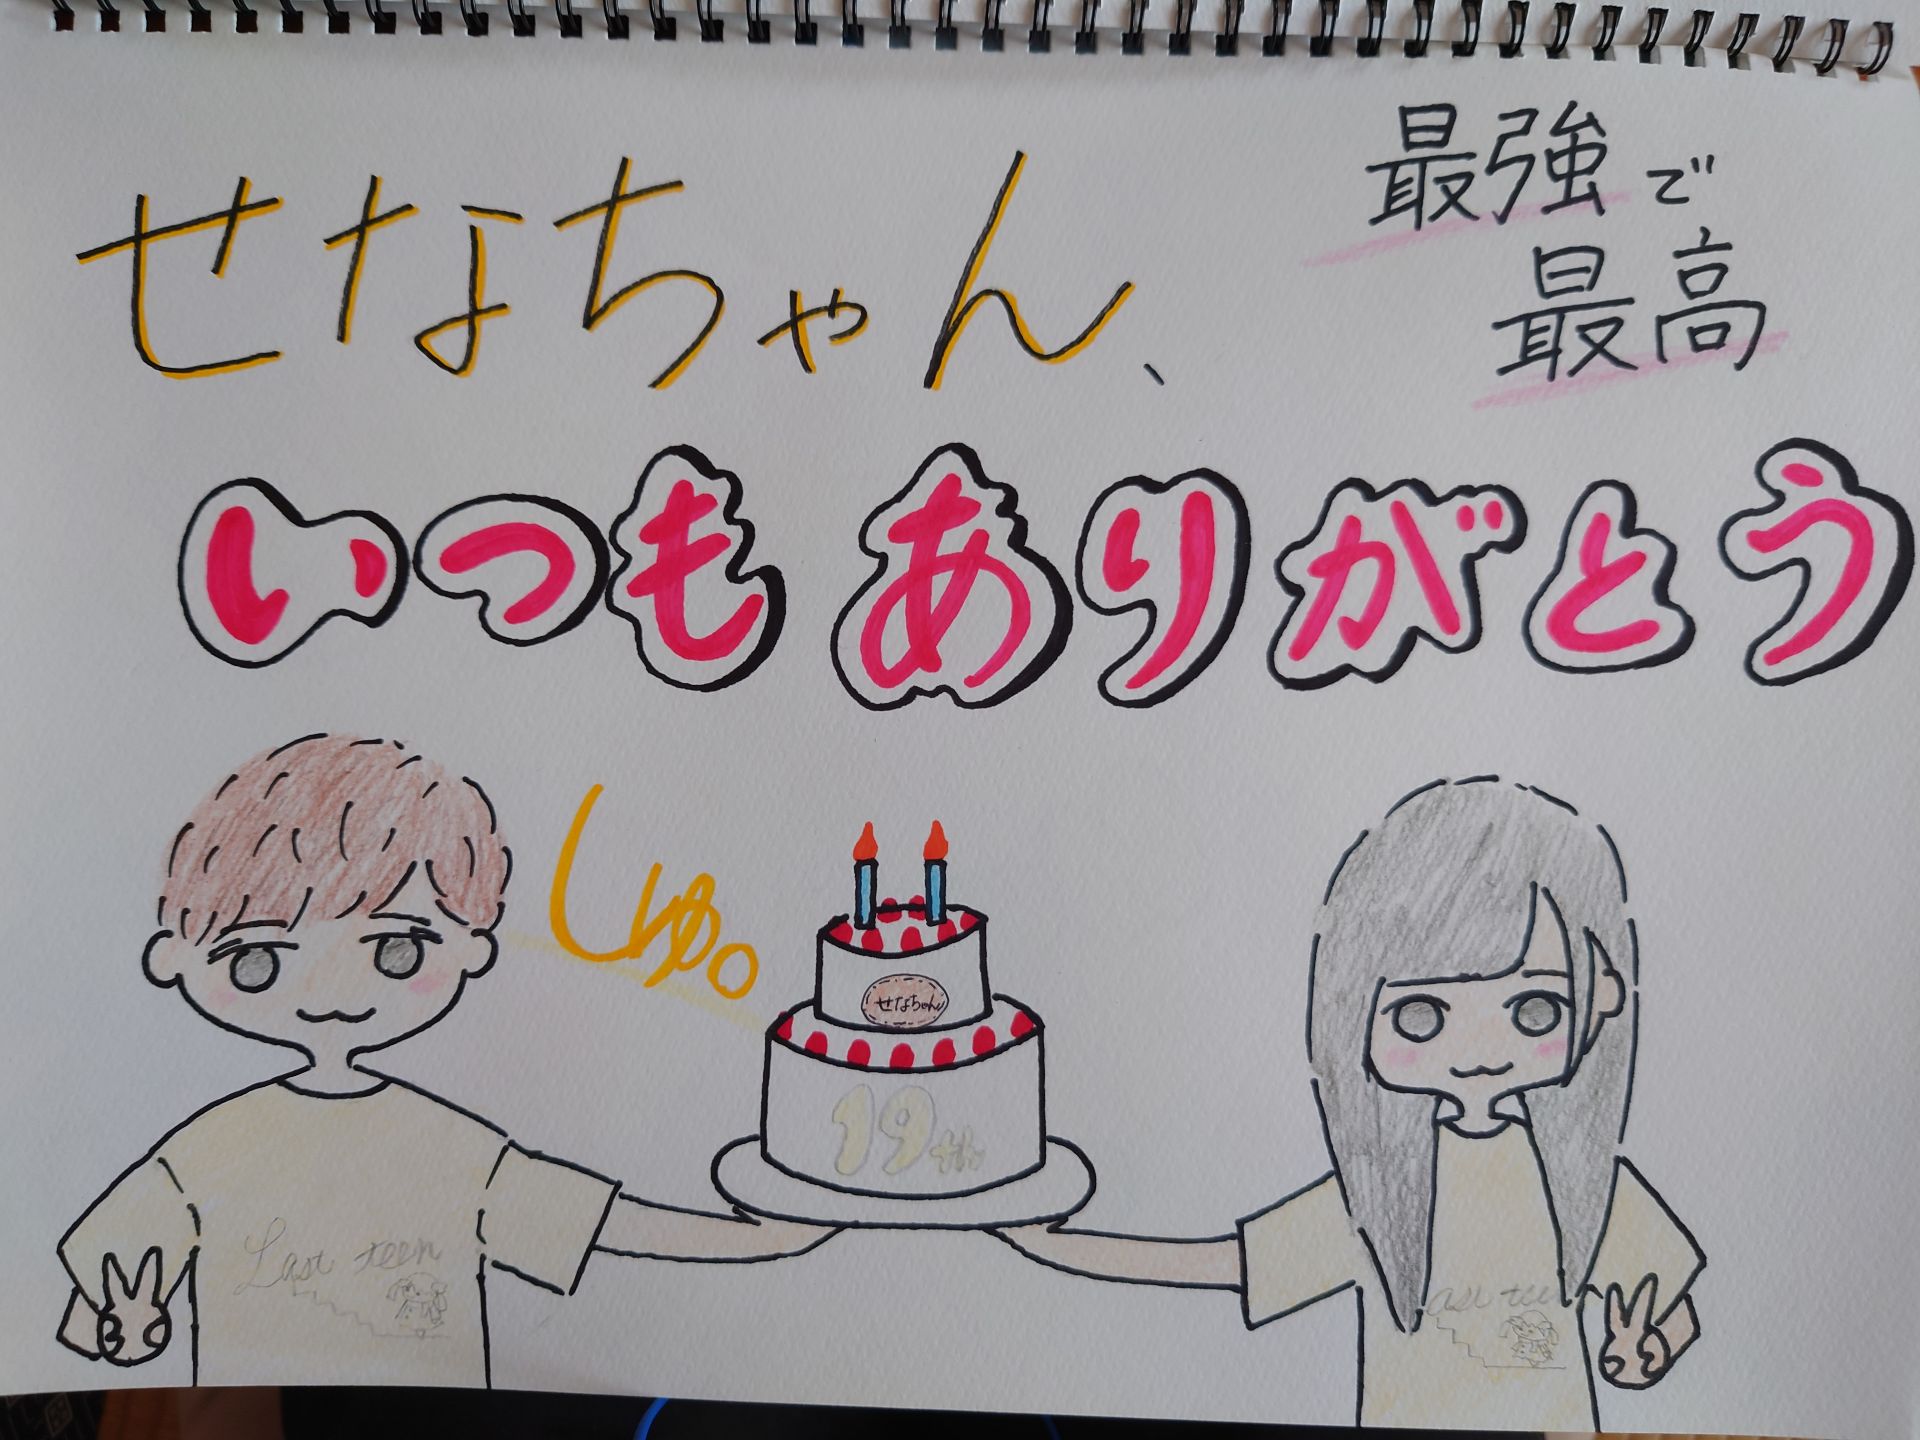 せなちゃん、
最強で
最高
いつもありがとう
しゅ。
せなちゃん
19th
Last teen
ast tee